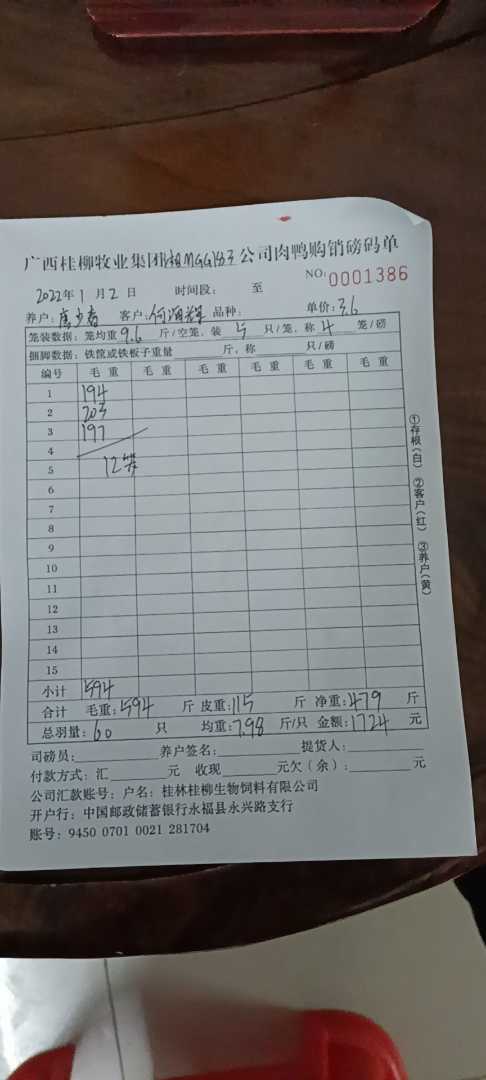 广西桂柳牧业集团 公司肉鸭购销磅码单
NO: 0001386
2022年 1 月 2 日 时间段: 至
养户: 客户: 品种: 单价: 3.6
笼装数据: 笼均重 9.6 斤/空笼、装 5 只/笼、称 4 笼/磅
捆脚数据: 铁筐或铁板子重量 斤, 称 只/磅
编号 毛 重 毛 重 毛 重 毛 重 毛 重 毛 重
1 194
2 203
3 197
4
5 12笼
6
7
8
9
10
11
12
13
14
15
小计 594
合计 毛重: 594 斤 皮重: 115 斤 净重: 479 斤
总羽量: 60 只 均重: 7.98 斤/只 金额: 1724 元
司磅员: 养户签名: 提货人:
付款方式: 汇 元 收现 元欠(余): 元
公司汇款账号: 户名: 桂林桂柳生物饲料有限公司
开户行: 中国邮政储蓄银行永福县永兴路支行
账号: 9450 0701 0021 281704
①存根(白) ②客户(红) ③养户(黄)